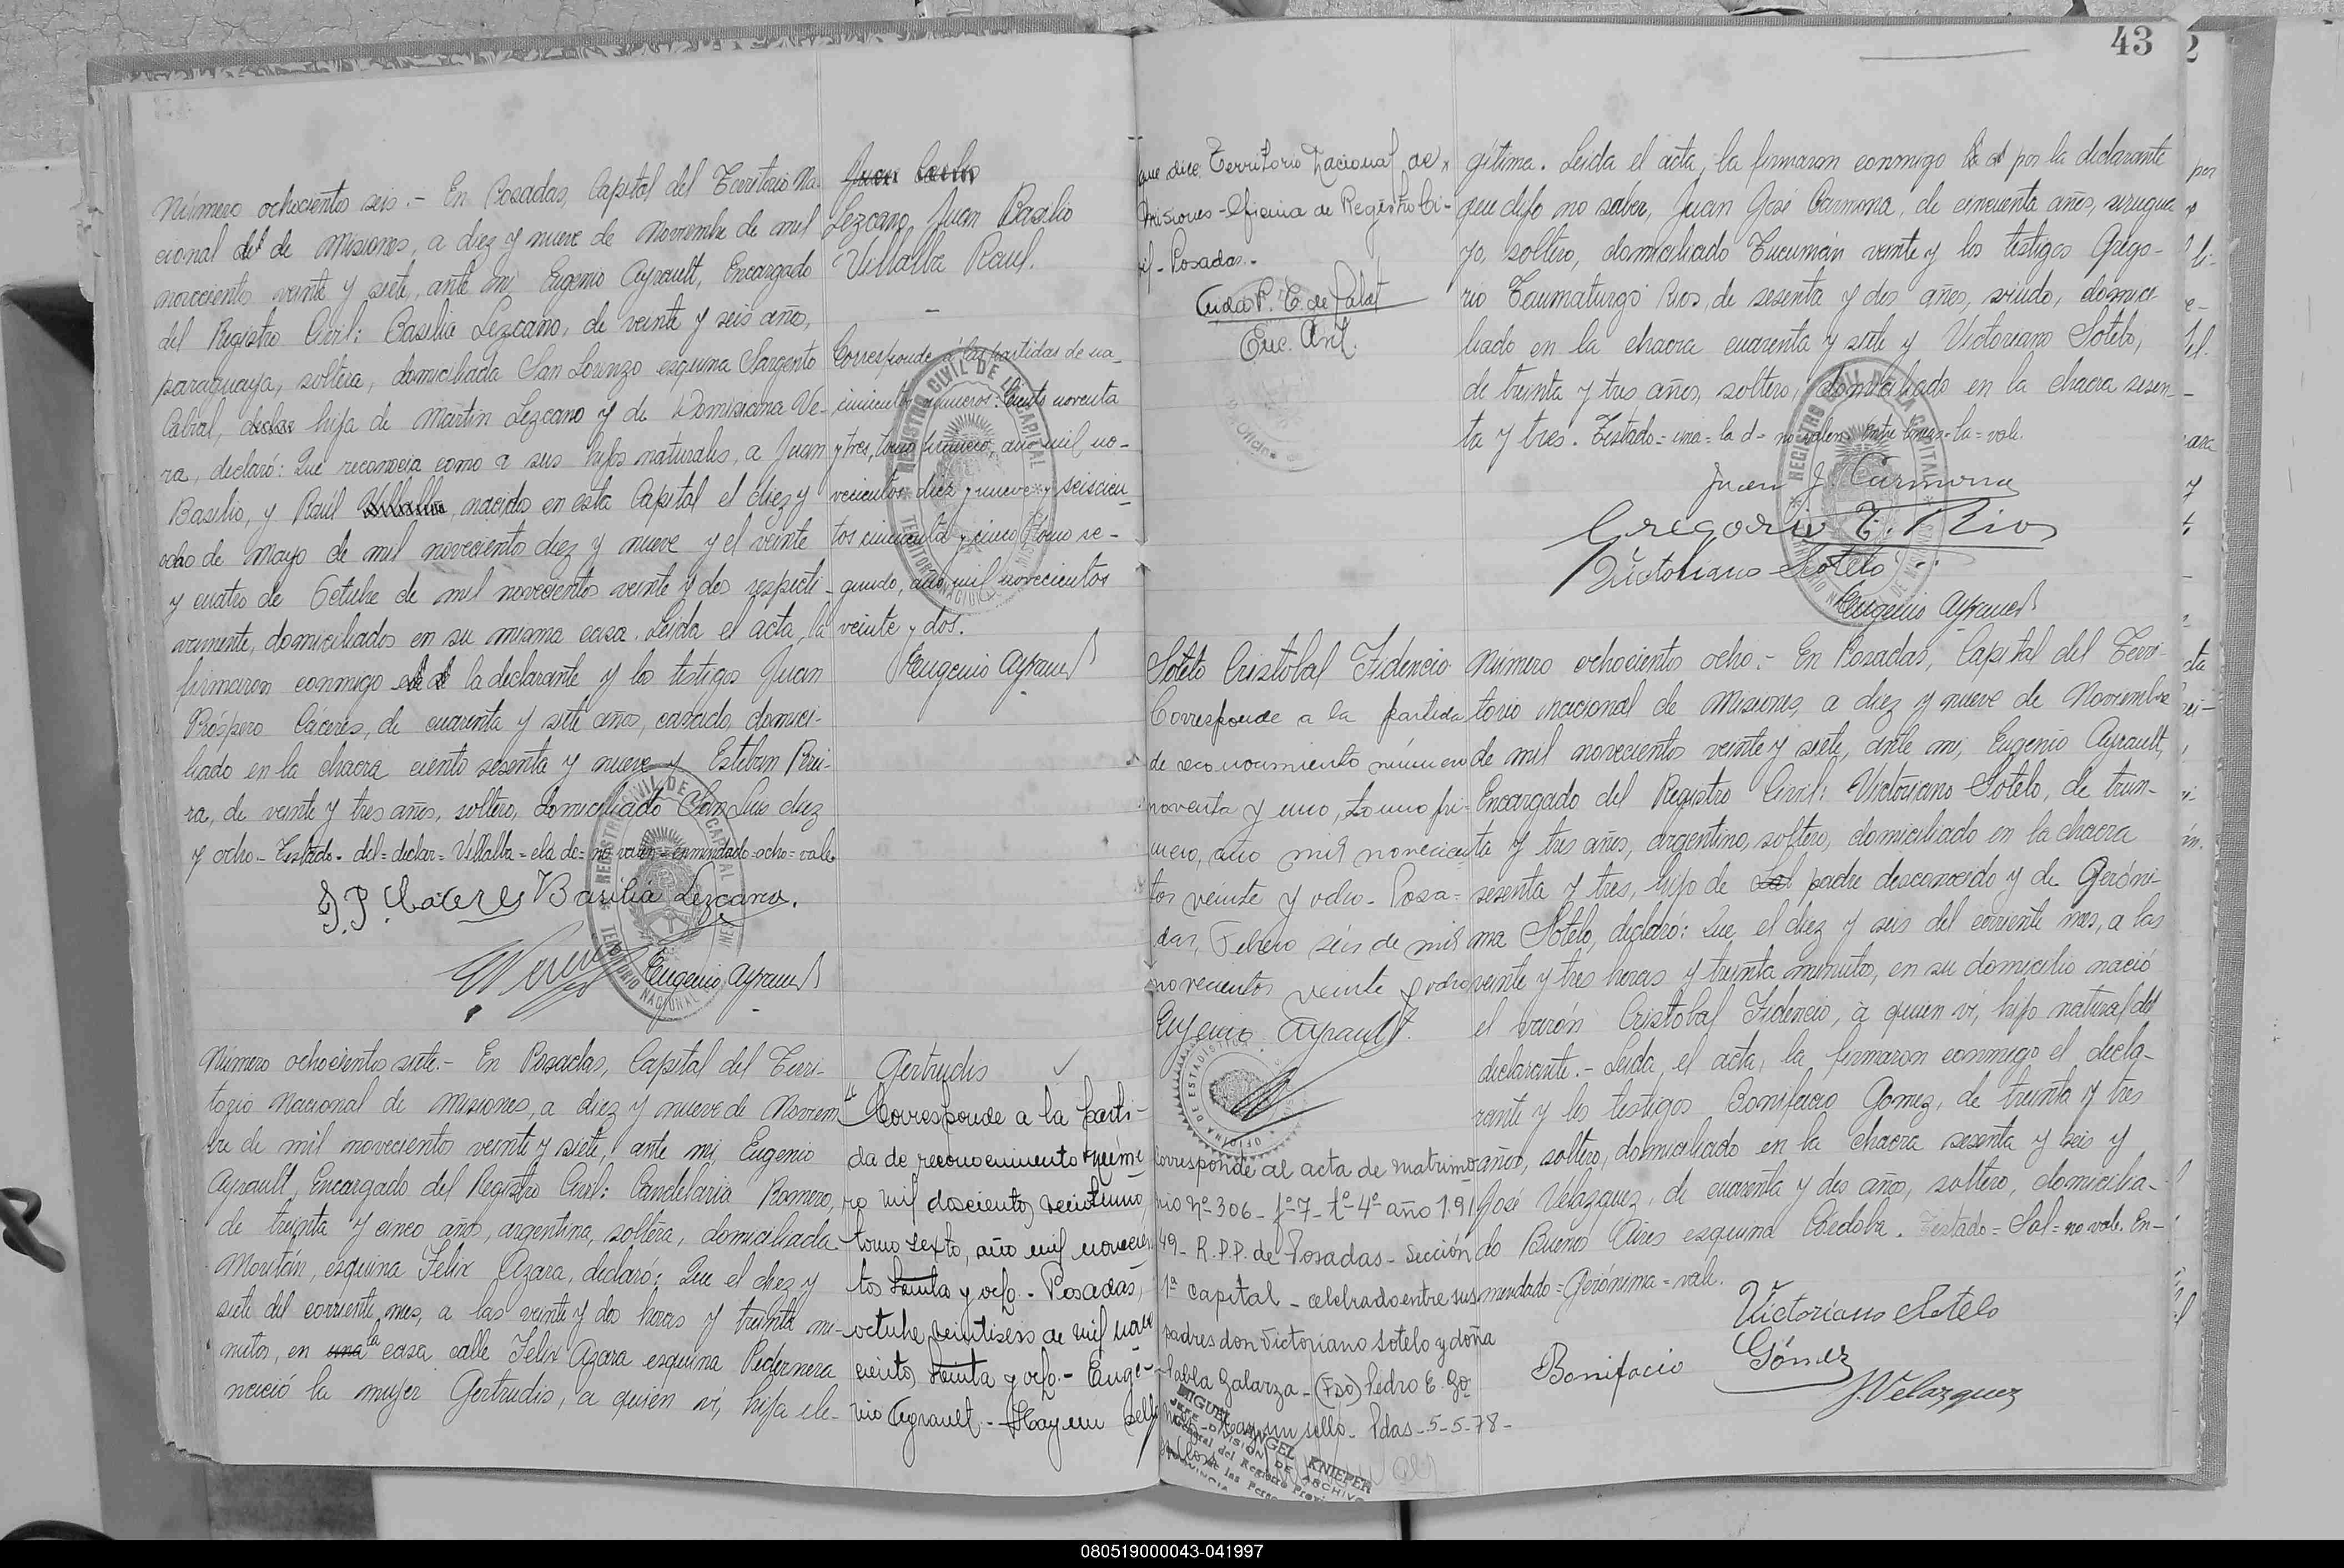 Número ochocientos seis.- En Posadas, Capital del Territorio Na-
cional del de Misiones, a diez y nueve de Noviembre de mil
novecientos veinte y siete, ante mi, Eugenio Ayrault, Encargado
del Registro Civil: Basilia Lezcano, de veinte y seis años,
paraguaya, soltera, domiciliada San Lorenzo esquina Sargento
Cabral, declar hija de Martin Lezcano y de Domiciana Ve-
ra, declaró: Que reconocia como a sus hijos naturales, a Juan
Basilio, y Raúl Villalba, nacidos en esta Capital el diez y
ocho de Mayo de mil novecientos diez y nueve y el veinte
y cuatro de Octubre de mil novecientos veinte y dos respecti-
vamente, domiciliados en su misma casa. Leida el acta, la
firmaron conmigo el d la declarante y los testigos Juan
Próspero Cáceres, de cuarenta y siete años, casado, domici-
liado en la chacra ciento sesenta y nueve y Esteban Rivi-
ra, de veinte y tres años, soltero, domiciliado San Luis diez
y ocho.- Testado- del= declar= Villalba= el d= no valen= enmendado= ocho= vale.
J. P. Cáceres Basilia Lezcano.
Eugenio Ayrault
Lezcano, Juan Basilio
Villalba Raul.
Corresponde á las partidas de na-
cimientos números: Ciento noventa
y tres, tomo primero, año mil no-
vecientos diez y nueve y seiscien-
tos cincuenta y cinco tomo se-
gundo, año mil novecientos
veinte y dos.
Eugenio Ayrault
REGISTRO CIVIL DE LA CAPITAL
TERRITORIO NACIONAL DE MISIONES
Número ochocientos siete.- En Posadas, Capital del Terri-
torio Nacional de Misiones, a diez y nueve de Noviem-
bre de mil novecientos veinte y siete, ante mi, Eugenio
Ayrault, Encargado del Registro Civil: Candelaria Romero,
de treinta y cinco años, argentina, soltera, domiciliada
Moritán, esquina Felix Azara, declaró: Que el diez y
siete del corriente mes, a las veinte y dos horas y treinta mi-
nutos, en una la casa calle Felix Azara esquina Pedernera
nació la mujer Gertrudis, a quien ví, hija ile-
Gertrudis
Corresponde a la parti-
da de reconocimiento núme
ro mil doscientos veintiuno,
tomo sexto, año mil novecien
tos treinta y ocho.- Posadas,
octubre veintiseis de mil nove
cientos treinta y ocho.- Euge-
nio Ayrault.- Hay un sello
43
que dice Territorio Nacional de
Misiones- Oficina de Registro Ci-
vil- Posadas.-
Enc. Arch.
gítima. Leida el acta, la firmaron conmigo la d por la declarante
que dijo no saber, Juan José Carmona, de cincuenta años, urugua
yo, soltero, domiciliado Tucumán veinte y los testigos Grego-
rio Taumaturgo Rios, de sesenta y dos años, viudo, domici-
liado en la chacra cuarenta y siete y Victoriano Sotelo,
de treinta y tres años, soltero, domiciliado en la chacra sesen-
ta y tres. Testado= una= la d= no valen. Entre lineas= la= vale.
Juan J. Carmona
Gregorio T. Rios
Victoriano Sotelo
Eugenio Ayrault
REGISTRO CIVIL DE LA CAPITAL
Sotelo Cristobal Fidencio
Corresponde a la partida
de reconocimiento número
noventa y uno, tomo pri-
mero, año mil novecien
tos veinte y ocho- Posa-
das, Febrero seis de mil
novecientos veinte y ocho
Eugenio Ayrault.
OFICINA DE ESTADISTICA
Corresponde al acta de matrimo
nio Nº 306- fº 7- tº 4º año 19
49- R.P.P. de Posadas- Sección
1ª Capital- celebrado entre sus
padres don Victoriano Sotelo y doña
Pabla Galarza- (FDO) Pedro E. Go
Hay un sello- Pdas- 5-5-78-
MIGUEL ANGEL KNIEPER
JEFE DIVISION DE ARCHIVO
Número ochociento ocho.- En Posadas, Capital del Terri-
torio nacional de Misiones, a diez y nueve de Noviembre
de mil novecientos veinte y siete, ante mi, Eugenio Ayrault,
Encargado del Registro Civil: Victoriano Sotelo, de trein-
ta y tres años, argentino, soltero, domiciliado en la chacra
sesenta y tres, hijo de Sal padre desconocido y de Geróni-
ma Sotelo, declaró: Que el diez y seis del corriente mes, a las
veinte y tres horas y treinta minutos, en su domicilio nació
el varón Cristobal Fidencio, à quien ví, hijo natural del
declarante.- Leida el acta, la firmaron conmigo el decla-
rante y los testigos Bonifacio Gomez, de treinta y tres
años, soltero, domiciliado en la chacra sesenta y seis y
José Velazquez, de cuarenta y dos años, soltero, domicilia-
do Buenos Aires esquina Córdoba. Testado= Sal= no vale. En-
mendado= Gerónima= vale.
Victoriano Sotelo
Bonifacio Gómez
J. Velazquez
080519000043-041997